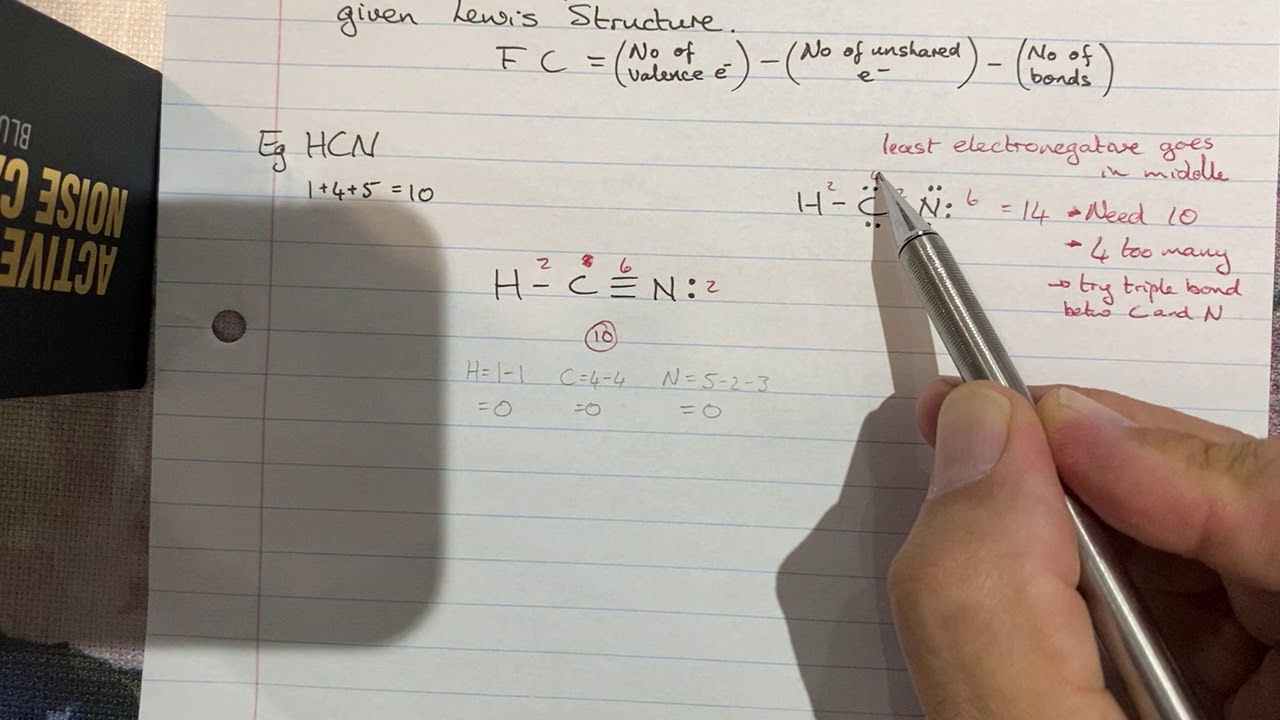 given Lewis Structure.
F C = (No of valence e⁻) - (No of unshared e⁻) - (No of bonds)
Eg HCN
1+4+5 = 10
least electronegative goes
in middle
H - C N: = 14 → Need 10
2 4 2 6
→ 4 too many
→ try triple bond
betw C and N
H - C ≡ N:
2 6 2
10
H = 1-1 C = 4-4 N = 5-2-3
= 0 = 0 = 0
ACTIVE
NOISE
BLU